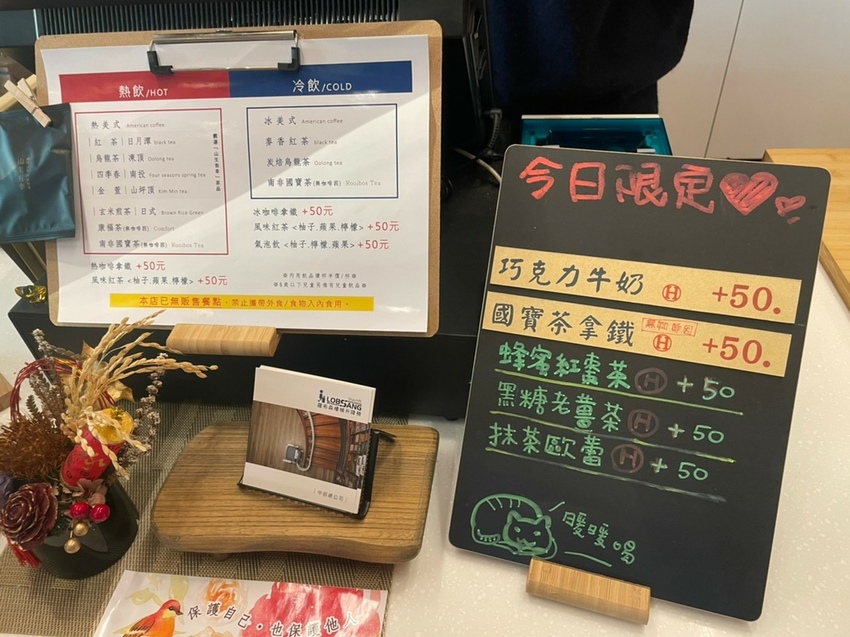 熱飲/HOT
熱美式 American coffee
紅 茶│日月潭 black tea
烏龍茶│凍頂 Oolong tea
四季春│南投 Four seasons spring tea
金 萱│山坪頂 Kim Min tea
玄米煎茶│日式 Brown Rice Green
康福茶(無咖啡因) Comfort
南非國寶茶(無咖啡因) Rooibos Tea
熱咖啡拿鐵 +50元
風味紅茶 <柚子.蘋果.檸檬> +50元
冷飲/COLD
冰美式 American coffee
麥香紅茶 black tea
炭焙烏龍茶 Oolong tea
南非國寶茶(無咖啡因) Rooibos Tea
冰咖啡拿鐵 +50元
風味紅茶 <柚子.蘋果.檸檬> +50元
氣泡飲 <柚子.檸檬.蘋果> +50元
本店已無販售餐點，禁止攜帶外食/食物入內食用。
LOBSANG
羅布森樓梯升降椅
保護自己，也保護他人
今日限定
巧克力牛奶 H +50.
國寶茶拿鐵 無咖啡因 H +50.
蜂蜜紅棗茶 H +50
黑糖老薑茶 H +50
抹茶歐蕾 H +50
暖暖喝